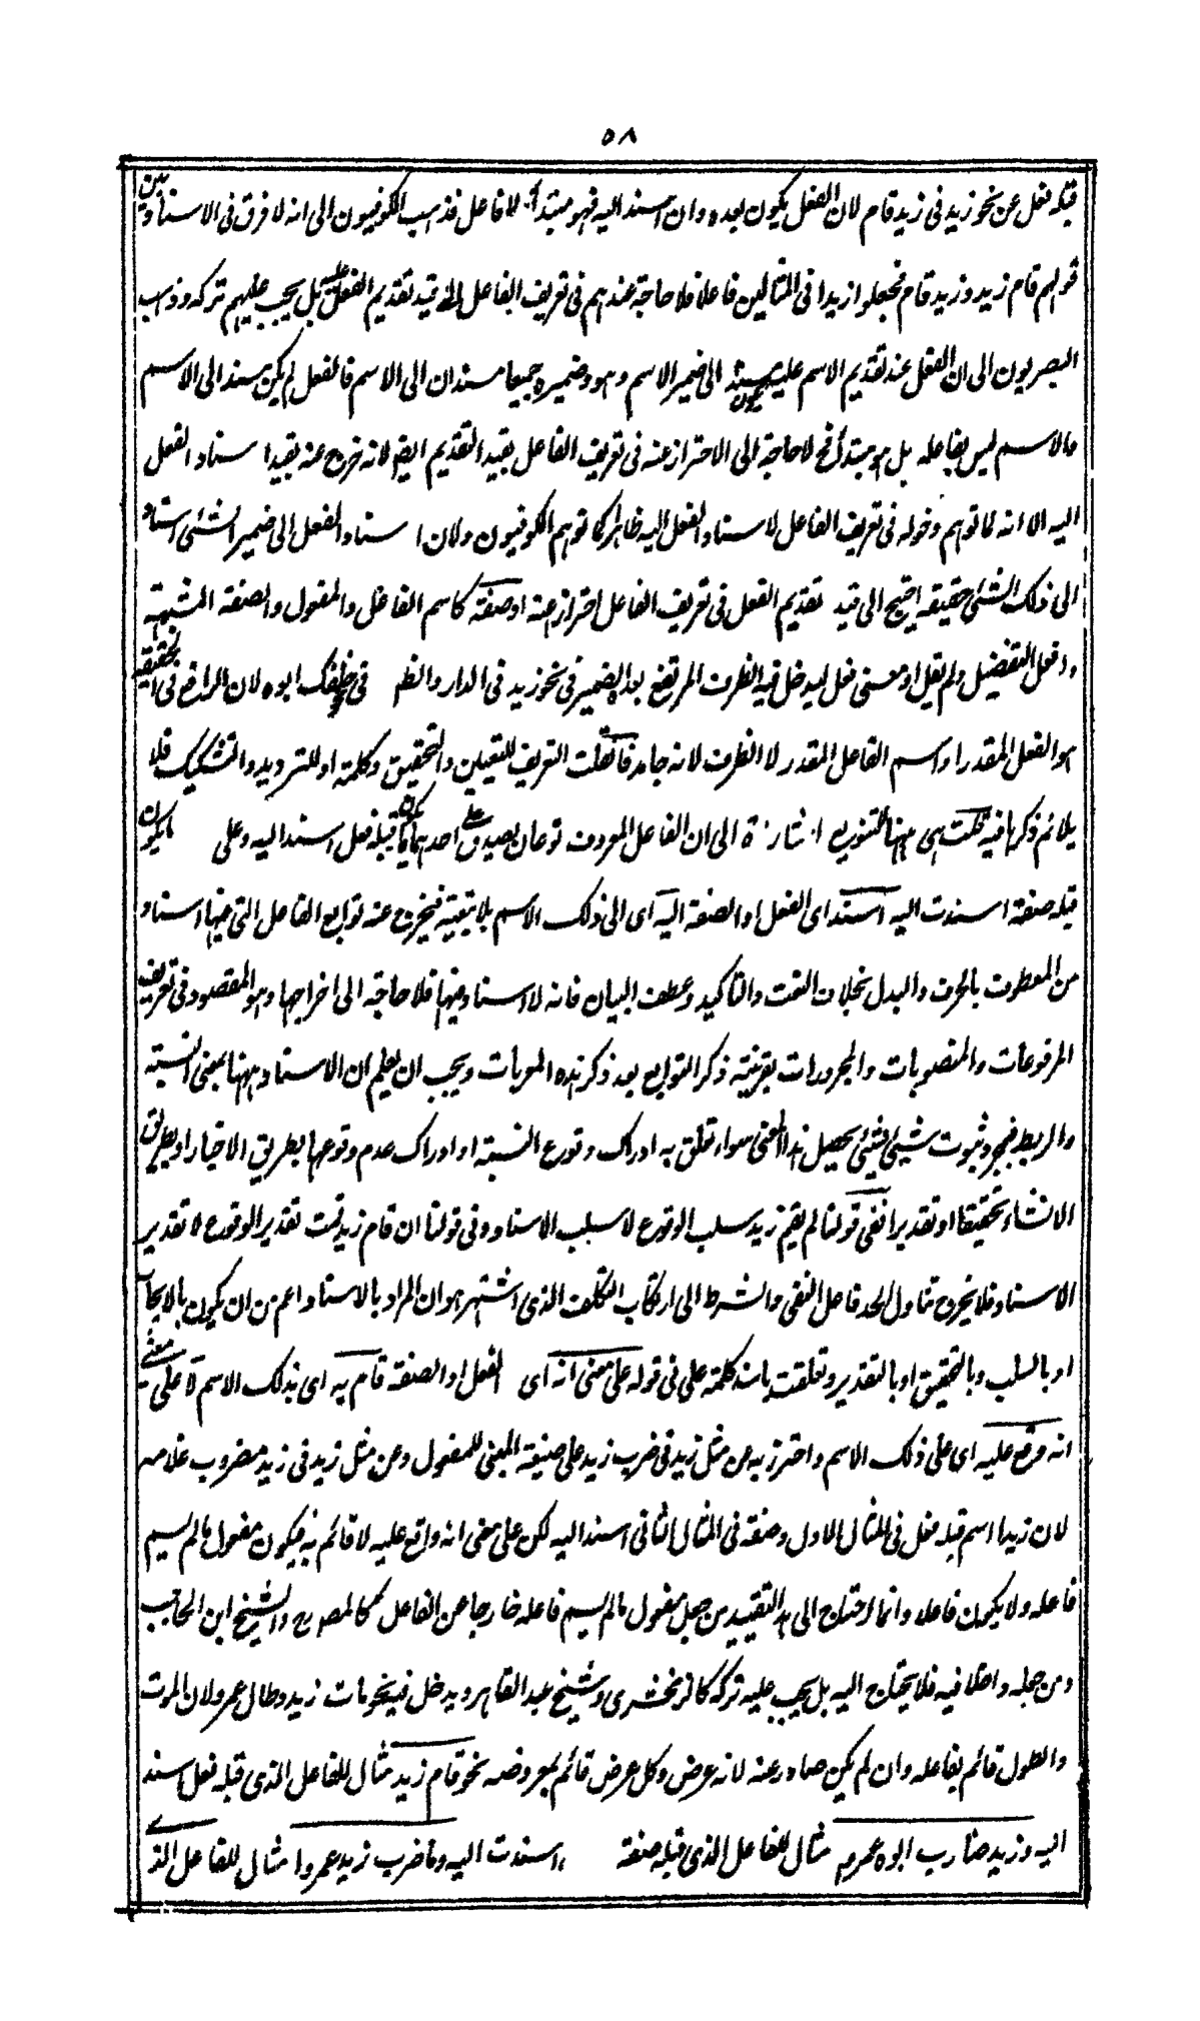 ٥٨
قبله فعل عن نحو زيد فى زيد قام لان الفعل يكون بعده وان اسند اليه فهو مبتدأ لا فاعل فذهب الكوفيون الى انه لا فرق فى الاسناد بين
قولهم قام زيد وزيد قام فجعلوا زيدا فى المثالين فاعلا فلا حاجة عندهم فى تعريف الفاعل الى قيد تقديم الفعل عليه بل يجب عليهم تركه وذهب
البصريون الى ان الفعل عند تقديم الاسم عليه يسند الى ضمير الاسم وهو وضميره جميعا مسندان الى الاسم فالفعل لم يكن مسندا الى الاسم
والاسم ليس بفاعله بل هو مبتدأ فح لا حاجة الى الاحتراز عنه فى تعريف الفاعل بقيد التقديم ايضا لانه خرج عنه بقيد اسناد الفعل
اليه الا انه لما توهم دخوله فى تعريف الفاعل لاسناد الفعل اليه ظاهرا كما توهم الكوفيون ولان اسناد الفعل الى ضمير الشئ اسناد
الى ذلك الشئ حقيقة احتيج الى قيد تقديم الفعل فى تعريف الفاعل احترازا عنه او صفة كاسم الفاعل والمفعول والصفة المشبهة
وافعل التفضيل ولم يقل او معنى فعل ليدخل فيه الظرف المرتفع به الضمير فى نحو زيد فى الدار والظاهر فى خلفك ابوه لان الرافع فى الحقيقة
هو الفعل المقدر او اسم الفاعل المقدر لا الظرف لانه جامد فان قلت التعريف للتعيين والتحقيق وكلمة او للترديد والتشكيك فلا
يلائم ذكرها فيه قلت هى ههنا للتنويع اشارة الى ان الفاعل المعروف نوعان يصدق على احدهما ما يكون قبله فعل اسند اليه وعلى ما يكون
قبله صفة اسندت اليه اسند اى الفعل او الصفة اليه اى الى ذلك الاسم بلا تبعية فيخرج عنه توابع الفاعل التى فيها اسناد
من المعطوف بالحرف والبدل بخلاف النعت والتاكيد وعطف البيان فانه لا اسناد فيها فلا حاجة الى اخراجها وهو المقصود فى تعريف
المرفوعات والمنصوبات والمجرورات بقرينة ذكر التوابع بعد ذكر هذه المعربات ويجب ان يعلم ان الاسناد ههنا بمعنى النسبة
والربط فبمجرد ثبوت شيئ لشيئ يحصل هذا المعنى سواء تعلق به ادراك وقوع النسبة او ادراك عدم وقوعها بطريق الاخبار او بطريق
الانشاء تحقيقا او تقديرا ففى قولنا لم يقم زيد سلب الوقوع لا سلب الاسناد وفى قولنا ان قام زيد قمت تقدير الوقوع لا تقدير
الاسناد فلا يخرج تناول الحد فاعل النفى والشرط الى ارتكاب التكلف الذى اشتهر هو ان المراد بالاسناد اعم من ان يكون بالايجاب
او بالسلب وبالتحقيق او بالتقدير وتعلقت باسناد كلمة على فى قوله على معنى انه اى الفعل او الصفة قام به اى بذلك الاسم لا على معنى
انه وقع عليه اى على ذلك الاسم واحترز به عن مثل زيد فى ضرب زيد على صيغة المبنى للمفعول وعن مثل زيد فى زيد مضروب غلامه
لان زيدا اسم قبله فعل فى المثال الاول وصفة فى المثال الثانى اسند اليه لكن على معنى انه واقع عليه لا قائم به فيكون مفعول ما لم يسم
فاعله ولا يكون فاعلا وانما احتاج الى هذا التقييد من جعل مفعول ما لم يسم فاعله خارجا عن الفاعل كالمص رح والشيخ ابن الحاجب
ومن جعله داخلا فيه فلا يحتاج اليه بل يجب عليه تركه كالزمخشرى وشيخ عبد القاهر ويدخل فيه نحو مات زيد وطال عمرو لان الموت
والطول قائم بفاعله وان لم يكن صادر عنه لانه عرض وكل عرض قائم بمعروضه نحو قام زيد مثال للفاعل الذى قبله فعل اسند
اليه وزيد ضارب ابوه عمروا مثال للفاعل الذى قبله صفة اسندت اليه وما ضرب زيد عمروا مثال للفاعل الذى